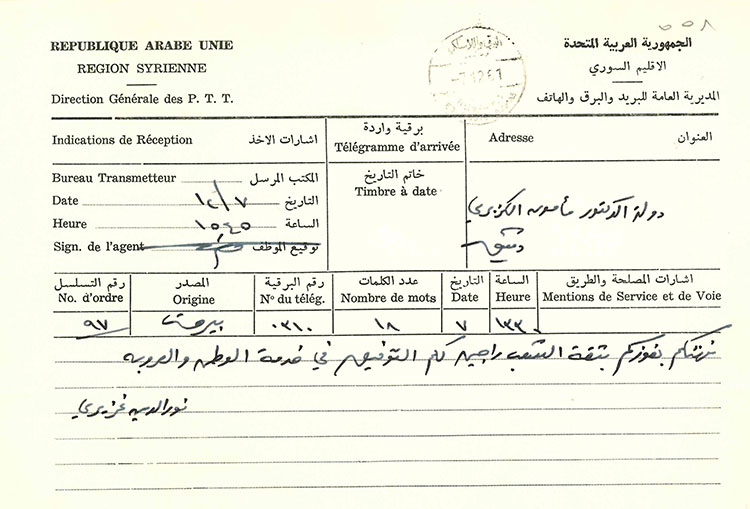 ٥٥٨
REPUBLIQUE ARABE UNIE
REGION SYRIENNE
Direction Générale des P. T. T.
7.12.61
الجمهورية العربية المتحدة
الاقليم السوري
المديرية العامة للبريد والبرق والهاتف
Indications de Réception اشارات الاخذ
برقية واردة
Télégramme d'arrivée
Adresse العنوان
Bureau Transmetteur المكتب المرسل
Date ١٢/٧ التاريخ
Heure ١٥٤٥ الساعة
Sign. de l'agent توقيع الموظف
خاتم التاريخ
Timbre à date
دولة الدكتور مأمون الكزبري
دمشق
رقم التسلسل المصدر رقم البرقية عدد الكلمات التاريخ الساعة اشارات المصلحة والطريق
No. d'ordre Origine Nº du télég. Nombre de mots Date Heure Mentions de Service et de Voie
٩٧ بيروت ٠٣١٠ ١٨ ٧ ١٣٣٠
نهنئكم بفوزكم بثقة الشعب راجين لكم التوفيق في خدمة الوطن والعروبه
نورالدين